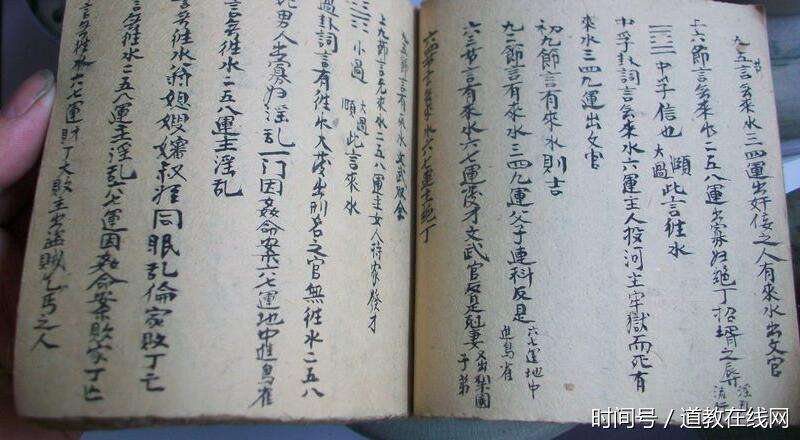 九五節言無來水三四運出奸佞之人有來水出文官
上六節言無來水二五八運出寡妇絶丁招壻之辱
中孚信也 大過 頤 此言往水
中孚卦詞言無來水六運主人投河主牢獄而死有
來水三四九運出文官
初九節言有來水則吉
九二節言有來水三四九運父子連科反是六七運地中進鳥雀
六三节言有來水六七運发才文武官反是尅妻又出梨園子弟
六四节言無來水六七運主絶丁
九五節言有來水文武双全
上九節言无來水二五八運主女人持家發才
小過 大過 頤 此言來水
過卦詞言有往水大發出刑名之官無往水二五八
男人出寡妇淫乱一门因姦命案六七運地中進鳥雀
言無往水二五八運主淫乱
言無徃水蒋姐嫂嬸叔侄同眠乱倫家敗丁亡
言無徃水二五八運主淫乱六七運因姦命案敗家丁亡
言無徃水六七運財丁大敗主出盜賊乞丐之人
时间号／道教在线网